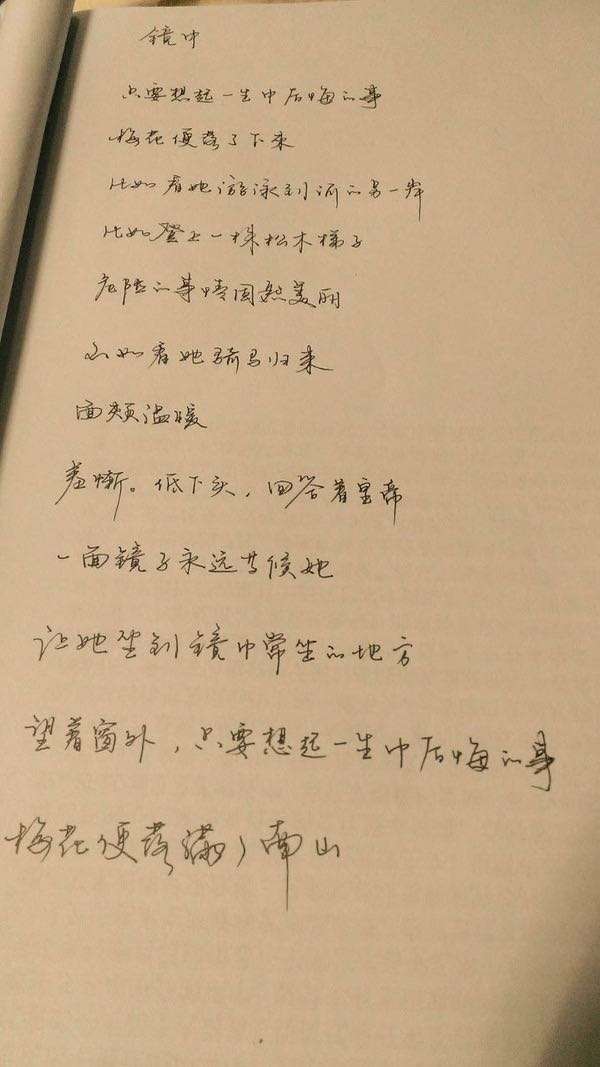 镜中
只要想起一生中后悔的事
梅花便落了下来
比如看她游泳到河的另一岸
比如登上一株松木梯子
危险的事情固然美丽
不如看她骑马归来
面颊温暖
羞惭。低下头，回答着皇帝
一面镜子永远等候她
让她坐到镜中常坐的地方
望着窗外，只要想起一生中后悔的事
梅花便落满了南山